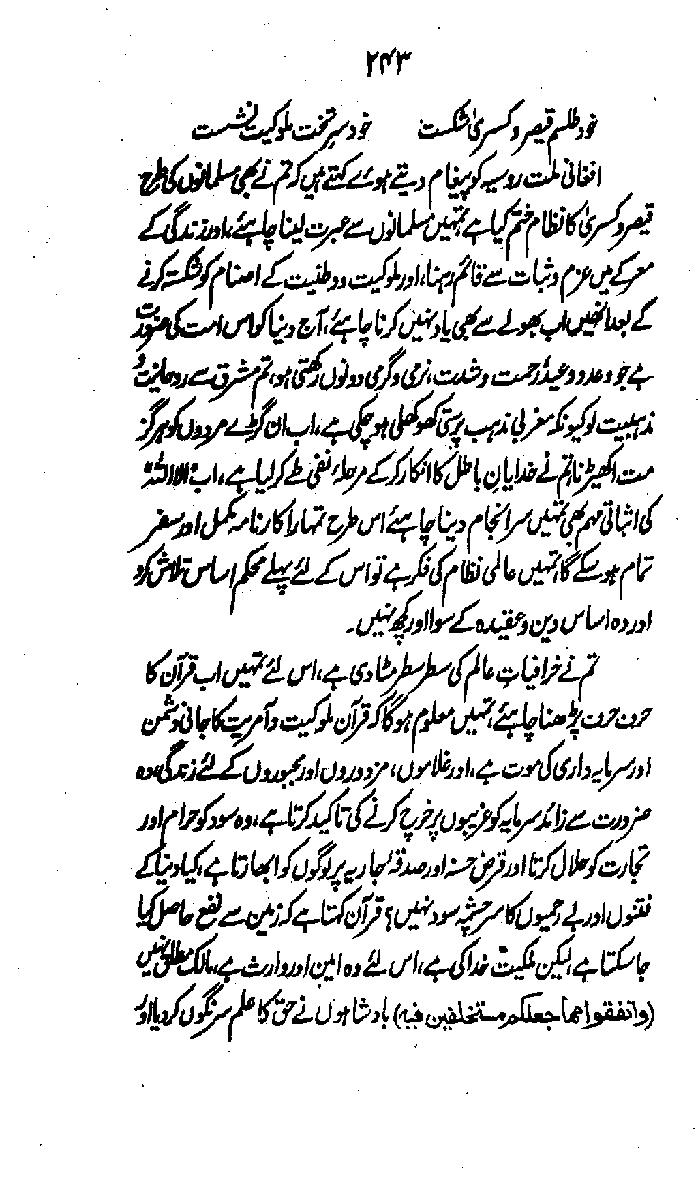 ۲۴۳
خود طلسم قیصر و کسریٰ شکست خود سرِ تخت ملوکیت نشست
افغانی ملت روسیہ کو پیغام دیتے ہوے کہتے ہیں کہ تم نے بھی مسلمانوں کی طرح
قیصر و کسریٰ کا نظام ختم کیا ہے، تمہیں مسلمانوں سے عبرت لینا چاہئے، اور زندگی کے
معرکے میں عزم و ثبات سے قائم رہنا، اور ملوکیت و وطنیت کے اصنام کو شکستہ کرنے
کے بعد انھیں اب بھولے سے بھی یاد نہیں کرنا چاہئے، آج دنیا کو اس امت کی ضرورت
ہے جو وعدو وعید، رحمت و شدت، نرمی و گرمی دونوں رکھتی ہو، تم مشرق سے روحانیت و
مذہبیت لو کیونکہ مغربی مذہب پرستی کھوکھلی ہو چکی ہے، اب ان گڑے مردوں کو ہرگز
مت اکھیڑنا، تم نے خدایانِ باطل کا انکار کر کے مرحلۂ نفی طے کر لیا ہے، اب الا اللہ
کی اثباتی مہم بھی تمہیں سرانجام دینا چاہئے اس طرح تمہارا کارنامہ مکمل اور سفر
تمام ہو سکے گا، تمہیں عالمی نظام کی فکر ہے تو اس کے لئے پہلے محکم اساس تلاش کرو
اور وہ اساس دین و عقیدہ کے سوا اور کچھ نہیں۔
تم نے خرافیاتِ عالم کی سطر سطر مٹا دی ہے، اس لئے تمہیں اب قرآن کا
حرف حرف پڑھنا چاہئے، تمہیں معلوم ہو گا کہ قرآن ملوکیت و آمریت کا جانی دشمن
اور سرمایہ داری کی موت ہے، اور غلاموں، مزدوروں اور مجبوروں کے لئے زندگی، وہ
ضرورت سے زائد سرمایہ کو غریبوں پر خرچ کرنے کی تاکید کرتا ہے، وہ سود کو حرام اور
تجارت کو حلال کرتا اور قرض حسنہ اور صدقۂ جاریہ پر لوگوں کو ابھارتا ہے، کیا دنیا کے
فتنوں اور بے رحمیوں کا سرچشمہ سود نہیں؟ قرآن کہتا ہے کہ زمین سے نفع حاصل کیا
جا سکتا ہے، لیکن ملکیت خدا کی ہے، اس لئے وہ امین اور وارث ہے، مالک مطلق نہیں
(وانفقوا مما جعلکم مستخلفین فیہ) بادشاہوں نے حق کا علم سرنگوں کر دیا اور